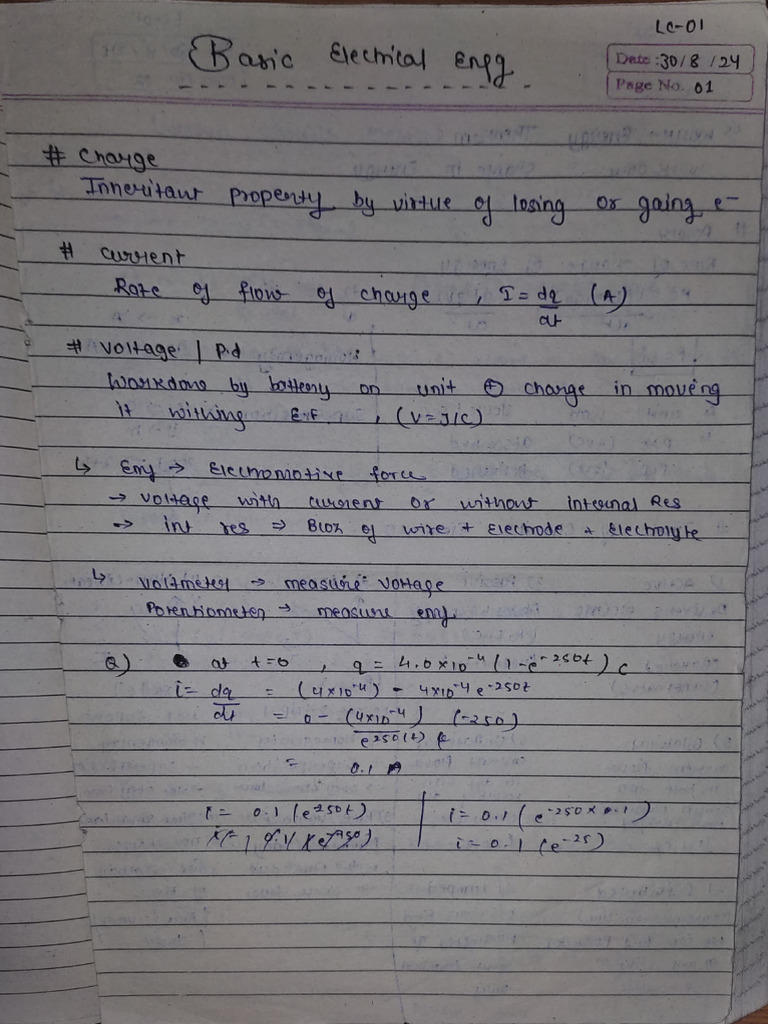 LC-01
Basic Electrical Engg
Date :30/8/24
Page No. 01
# Charge
Inheritant property by virtue of losing or gaing e⁻
# current
Rate of flow of charge , I = dq/dt (A)
# Voltage | P.d
Workdone by battery on unit ⊕ charge in moving
it withing E.F , (V = J/C)
↳ Emf → Electromotive force
→ voltage with current or without internal Res
→ int res ⇒ Bcoz of wire + Electrode + Electrolyte
↳ voltmeter → measure voltage
Potentiometer → measure emf
Q) at t=0 , q = 4.0×10⁻⁴ (1-e⁻²⁵⁰ᵗ) C
i = dq/dt = (4×10⁻⁴) - 4×10⁻⁴ e⁻²⁵⁰ᵗ
= 0 - (4×10⁻⁴)/e²⁵⁰⁽ᵗ⁾ (-250)
= 0.1 A
i = 0.1 (e²⁵⁰ᵗ) | i = 0.1 (e⁻²⁵⁰ˣ⁰·¹)
i = 0.1 (e⁻²⁵)